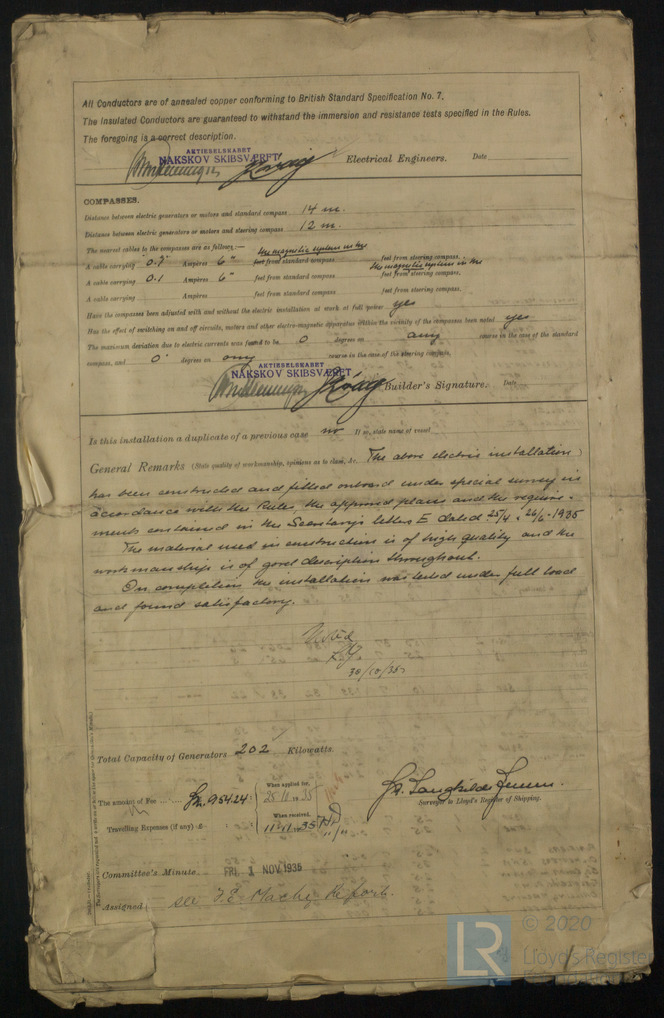 All Conductors are of annealed copper conforming to British Standard Specification No. 7.
The Insulated Conductors are guaranteed to withstand the immersion and resistance tests specified in the Rules.
The foregoing is a correct description.
AKTIESELSKABET
NAKSKOV SKIBSVÆRFT
Electrical Engineers. Date
COMPASSES.
Distance between electric generators or motors and standard compass 14 m.
Distance between electric generators or motors and steering compass 12 m.
The nearest cables to the compasses are as follows:—
the magnetic system in the
A cable carrying 0.7 Ampères 6" feet from standard compass feet from steering compass.
the magnetic system in the
A cable carrying 0.1 Ampères 6" feet from standard compass feet from steering compass.
A cable carrying Ampères feet from standard compass feet from steering compass.
Have the compasses been adjusted with and without the electric installation at work at full power yes
Has the effect of switching on and off circuits, motors and other electro-magnetic apparatus within the vicinity of the compasses been noted yes
The maximum deviation due to electric currents was found to be 0 degrees on any course in the case of the standard
compass, and 0 degrees on any course in the case of the steering compass.
AKTIESELSKABET
NAKSKOV SKIBSVÆRFT
Builder's Signature. Date
Is this installation a duplicate of a previous case no If so, state name of vessel
General Remarks (State quality of workmanship, opinions as to class, &c. The above electric installation
has been constructed and fitted onboard under special survey in
accordance with the Rules, the approved plans and the require-
ments contained in the Secretary's letters E dated 25/4 & 26/6-1935
The material used in construction is of high quality and the
workmanship is of good description throughout.
On completion the installation was tested under full load
and found satisfactory.
Noted
30/10/35
Total Capacity of Generators 202 Kilowatts.
The amount of Fee Kr. 954.24
When applied for,
25.10.1935
Travelling Expenses (if any) £
When received,
11.11.1935
Surveyor to Lloyd's Register of Shipping.
Committee's Minute FRI 1 NOV 1935
Assigned see F.E. Machy Report.
LR
© 2020
Lloyd's Register
Foundation